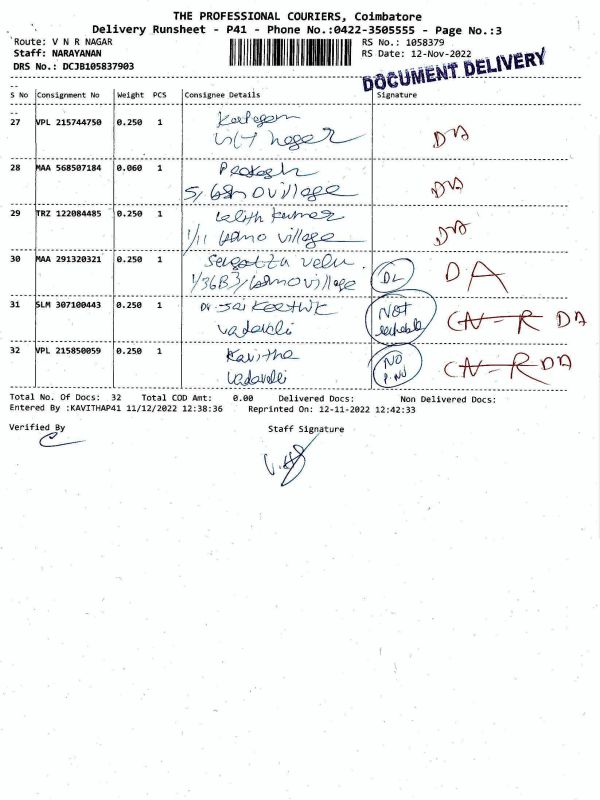 THE PROFESSIONAL COURIERS, Coimbatore
Delivery Runsheet - P41 - Phone No.:0422-3505555 - Page No.:3
Route: V N R NAGAR RS No.: 1058379
Staff: NARAYANAN RS Date: 12-Nov-2022
DRS No.: DCJB105837903 DOCUMENT DELIVERY
S No Consignment No Weight PCS Consignee Details Signature
27 VPL 215744750 0.250 1
nager DA
28 MAA 568507184 0.060 1 Prakash
village DA
29 TRZ 122084485 0.250 1 Lalith Kumar
1/11 village DA
30 MAA 291320321 0.250 1 velu
1/36B3/ village DL DA
31 SLM 307100443 0.250 1 Dr Jai Keerthik NOT
vadavalli reachable CN-R DA
32 VPL 215850059 0.250 1 Kavitha NO
vadavalli P.NO CN-R DA
Total No. Of Docs: 32 Total COD Amt: 0.00 Delivered Docs: Non Delivered Docs:
Entered By :KAVITHAP41 11/12/2022 12:38:36 Reprinted On: 12-11-2022 12:42:33
Verified By Staff Signature